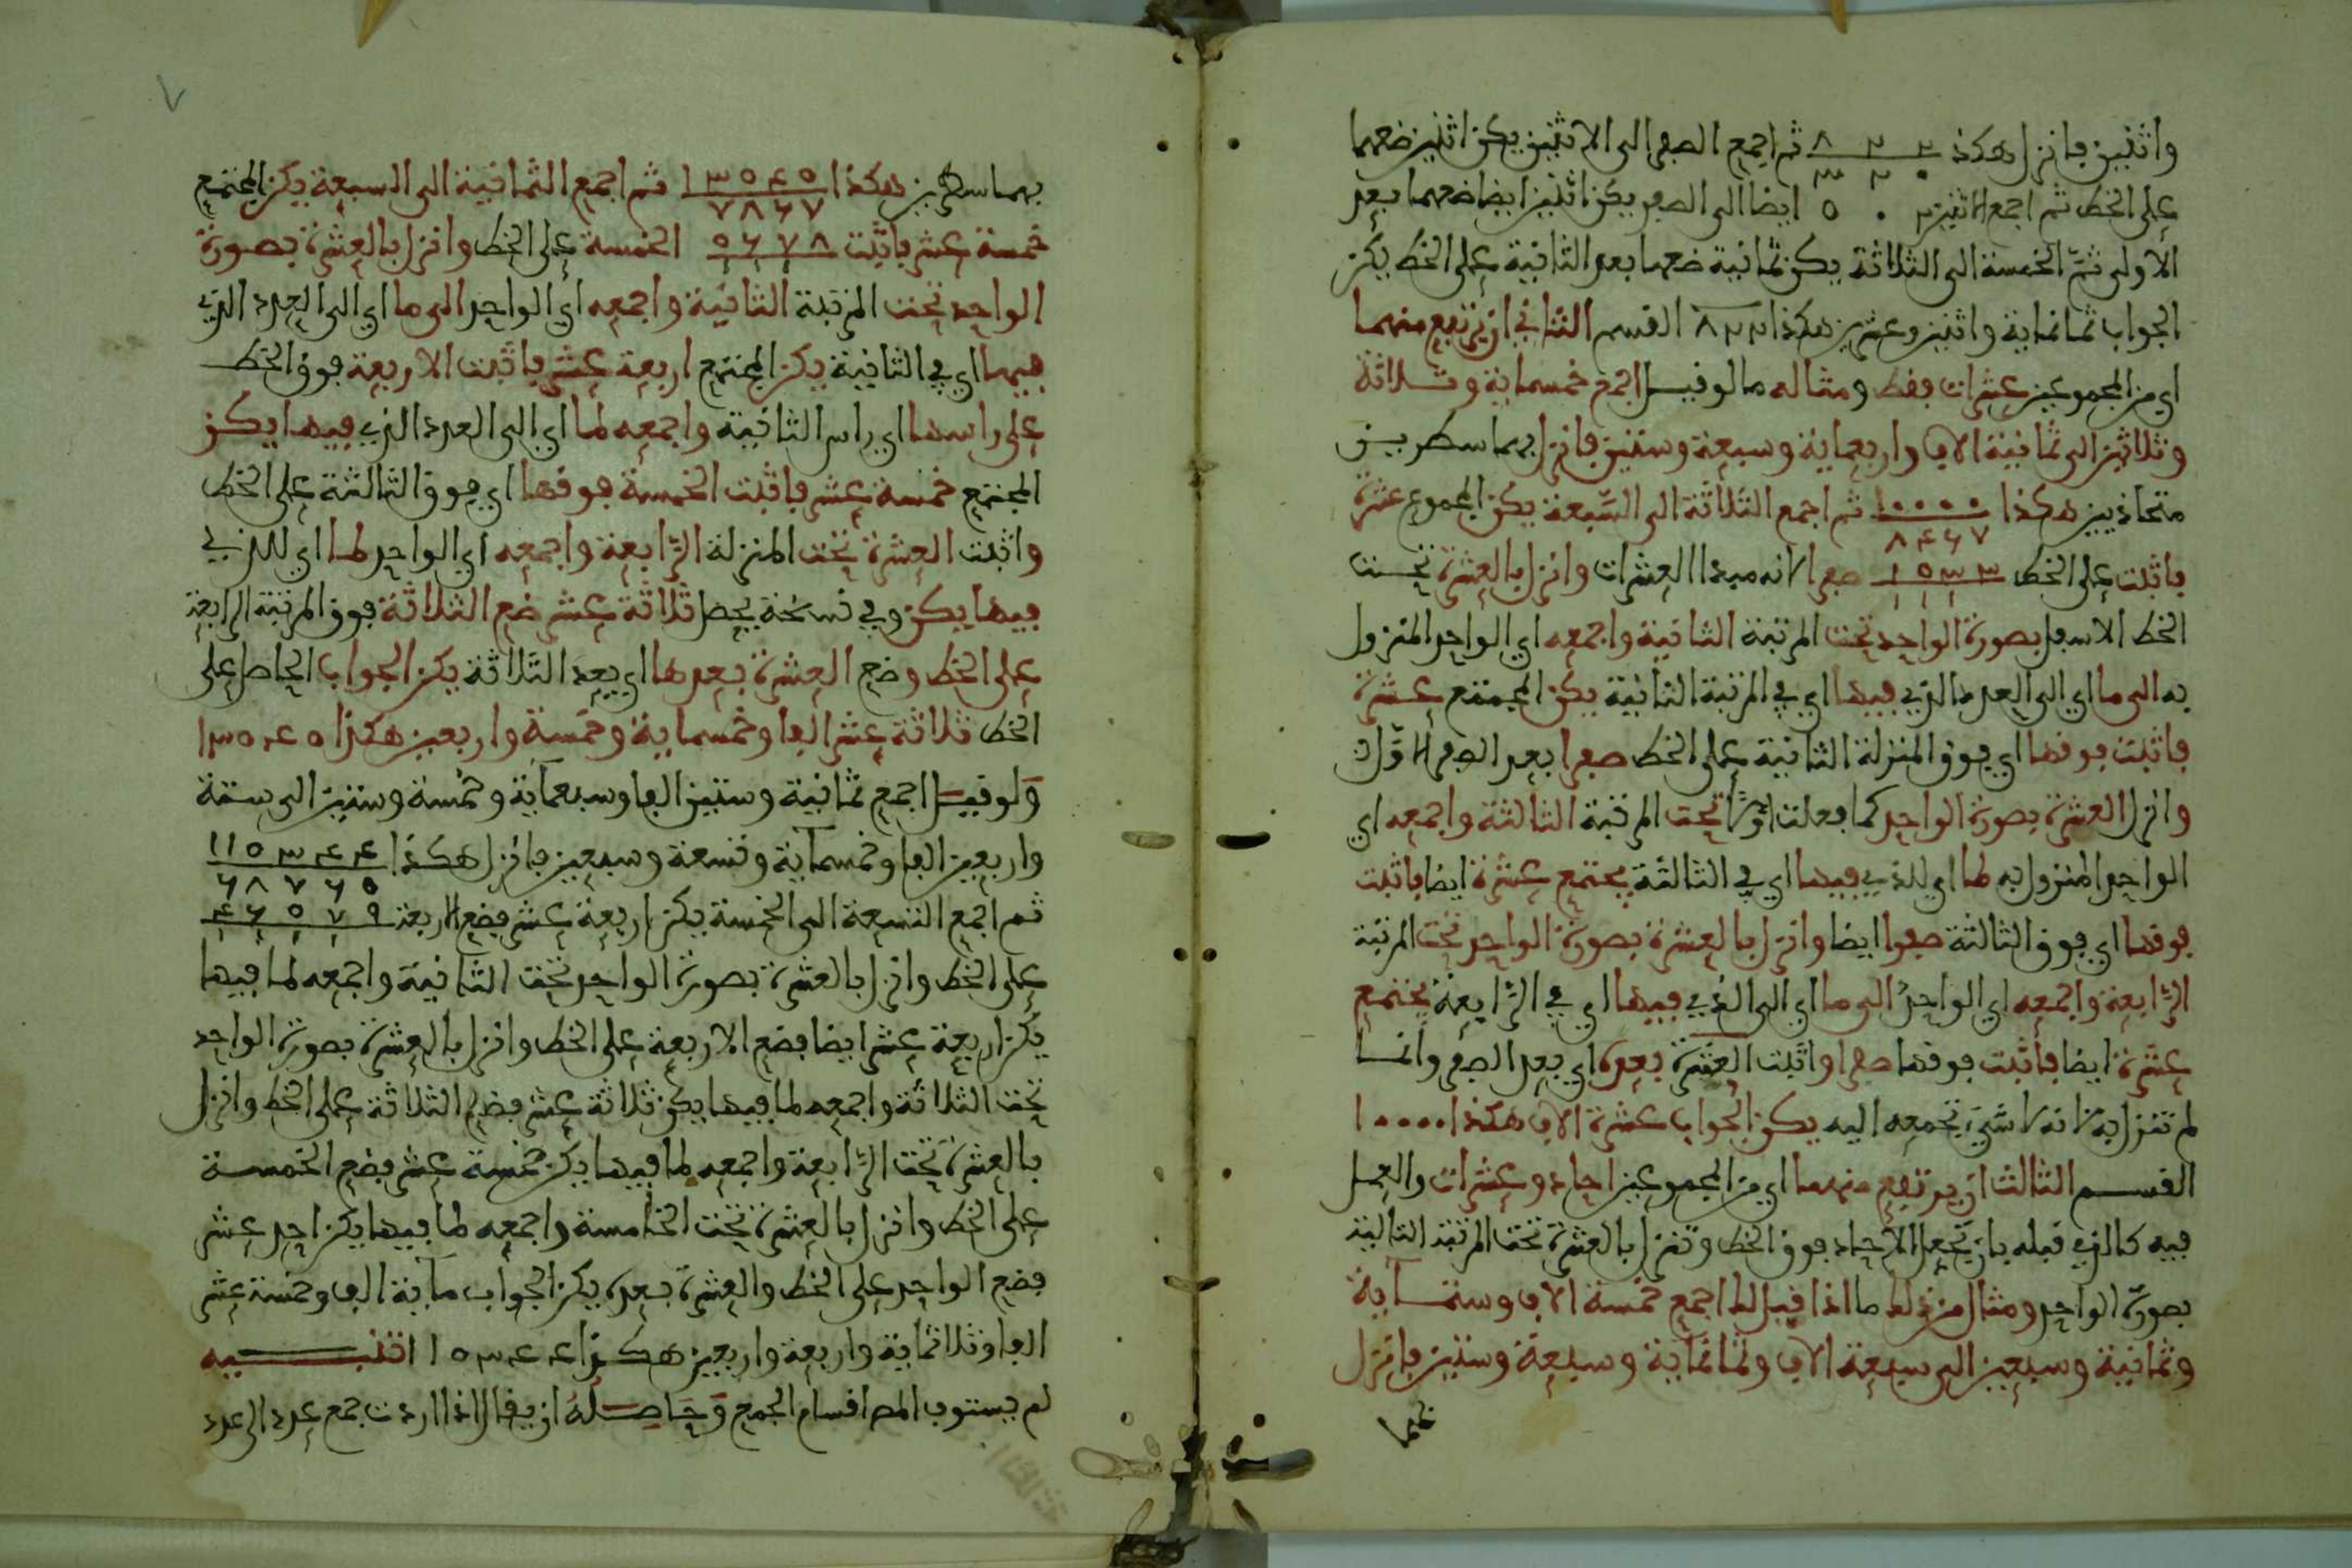 واثنين فانزل هكذا ٨٢٢ ثم اجمع الصفر الى الاثنين يكن اثنين ضعهما
على الخط ثم اجمع الاثنين ٢٠٥ ايضا الى الصفر يكن اثنين ايضا ضعهما بعد
الاولى ثمّ الخمسة الى الثلاثة يكن ثمانية ضعها بعد الثانية على الخط يكن
الجواب ثمانماية واثنين وعشرين هكذا ٨٢٢ القسم الثاني ان يرتفع منهما
اي من المجموعين عشرات فقط ومثاله ما لو قيل اجمع خمسماية وثلاثة
وثلاثين الى ثمانية الاف واربعماية وسبعة وستين فانزل بهما سطرين
متحاذيين هكذا ١٠٠٠٠ ثم اجمع الثلاثة الى السّبعة يكن المجموع عشرة
٨٤٦٧
فاثبت على الخط ١٥٣٣ صفرا لانه مبدا العشرات وانزل بالعشرة تحت
الخط الاسفل بصورة الواحد تحت المرتبة الثانية واجمعه اي الواحد المنزول
به الى ما اي الى العدد الذي فيها اي في المرتبة الثانية يكن المجتمع عشرة
فاثبت فوقها اي فوق المنزلة الثانية على الخط صفرا بعد الصفر الاوّل
وانزل العشرة بصورة الواحد كما فعلت اوّلا تحت المرتبة الثالثة واجمعه اي
الواحد المنزول به لما اي للذي فيها اي في الثالثة يجتمع عشرة ايضا فاثبت
فوقها اي فوق الثالثة صفرا ايضا وانزل بالعشرة بصورة الواحد تحت المرتبة
الرّابعة واجمعه اي الواحد الى ما اي الى الذي فيها اي في الرّابعة يجتمع
عشرة ايضا فاثبت فوقها صفرا واثبت العشرة بعده اي بعد الصفر وانما
لم تنزل به لانه لا شيء تجمعه اليه يكن الجواب عشرة الاف هكذا ١٠٠٠٠
القسم الثالث ان يرتفع منهما اي من المجموعين احاد وعشرات والعمل
فيه كالذي قبله بان تجعل الاحاد فوق الخط وتنزل بالعشرة تحت المرتبة التالية
بصورة الواحد ومثال من ذلك ما اذا قيل لك اجمع خمسة الاف وستماية
وثمانية وسبعين الى سبعة الاف وثمانماية وسبعة وستين فانزل
بهما سطرين هكذا ١٣٥٤٥ ثم اجمع الثمانية الى السبعة يكن المجتمع
٧٨٦٧
خمسة عشر فاثبت ٥٦٧٨ الخمسة على الخط وانزل بالعشرة بصورة
الواحد تحت المرتبة الثانية واجمعه اي الواحد الى ما اي الى العدد الذي
فيها اي في الثانية يكن المجتمع اربعة عشر فاثبت الاربعة فوق الخط
على راسها اي راس الثانية واجمعه لما اي الى العدد الذي فيها يكن
المجتمع خمسة عشر فاثبت الخمسة فوقها اي فوق الثالثة على الخط
واثبت العشرة تحت المنزلة الرّابعة واجمعه اي الواحد لما اي للذي
فيها يكن وفي نسخة يحصل ثلاثة عشر ضع الثلاثة فوق المرتبة الرابعة
على الخط وضع العشرة بعدها اي بعد الثلاثة يكن الجواب الحاصل على
الخط ثلاثة عشر الفا وخمسماية وخمسة واربعين هكذا ١٣٥٤٥
ولو قيل اجمع ثمانية وستين الفا وسبعماية وخمسة وستين الى ستة
واربعين الفا وخمسماية وتسعة وسبعين فانزل هكذا ١١٥٣٤٤
٦٨٧٦٥
ثم اجمع التسعة الى الخمسة يكن اربعة عشر فضع الاربعة ٤٦٥٧٩
على الخط وانزل بالعشرة بصورة الواحد تحت الثانية واجمعه لما فيها
يكن اربعة عشر ايضا فضع الاربعة على الخط وانزل بالعشرة بصورة الواحد
تحت الثلاثة واجمعه لما فيها يكن ثلاثة عشر فضع الثلاثة على الخط وانزل
بالعشرة تحت الرّابعة واجمعه لما فيها يكن خمسة عشر فضع الخمسة
على الخط وانزل بالعشرة تحت الخامسة واجمعه لما فيها يكن احد عشر
فضع الواحد على الخط والعشرة بعده يكن الجواب ماية الف وخمسة عشر
الفا وثلاثماية واربعة واربعين هكذا ١١٥٣٤٤ تنبيه
لم يستوف المص اقسام الجمع وحاصله ان يقال اذا اردت جمع عدد الى عدد